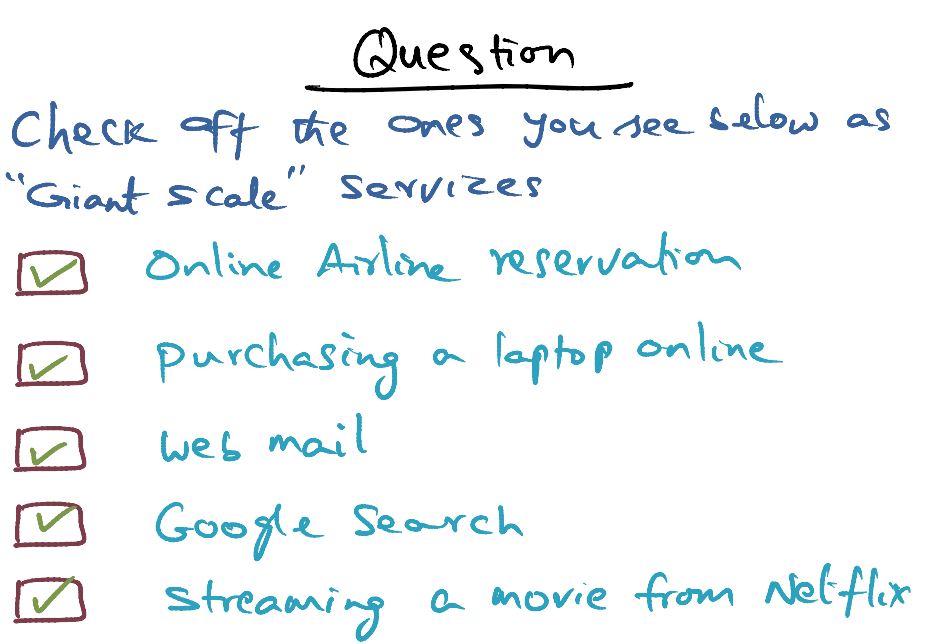 Question
Check off the ones you see below as
"Giant scale" services
Online Airline reservation
purchasing a laptop online
web mail
Google Search
streaming a movie from Netflix